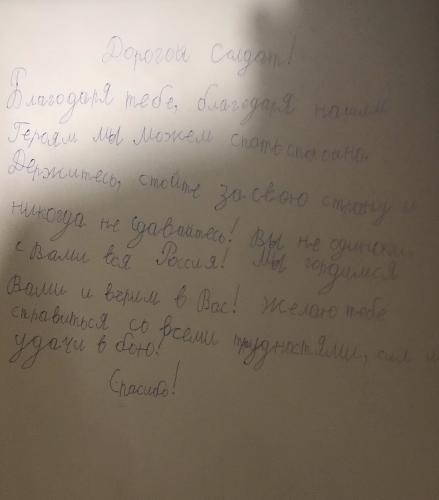 Дорогой Солдат!
Благодаря тебе, благодаря нашим
Героям мы можем спать спокойно.
Держитесь, стойте за свою страну и
никогда не сдавайтесь! Вы не одиноки,
с Вами вся Россия! Мы гордимся
Вами и верим в Вас! Желаю тебе
справиться со всеми трудностями, сил и
удачи в бою!
Спасибо!